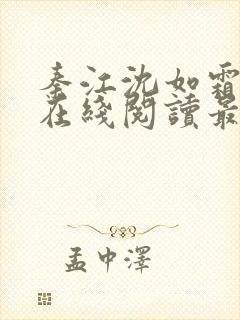 秦江沈如霜
在綫閱讀最
孟中澤